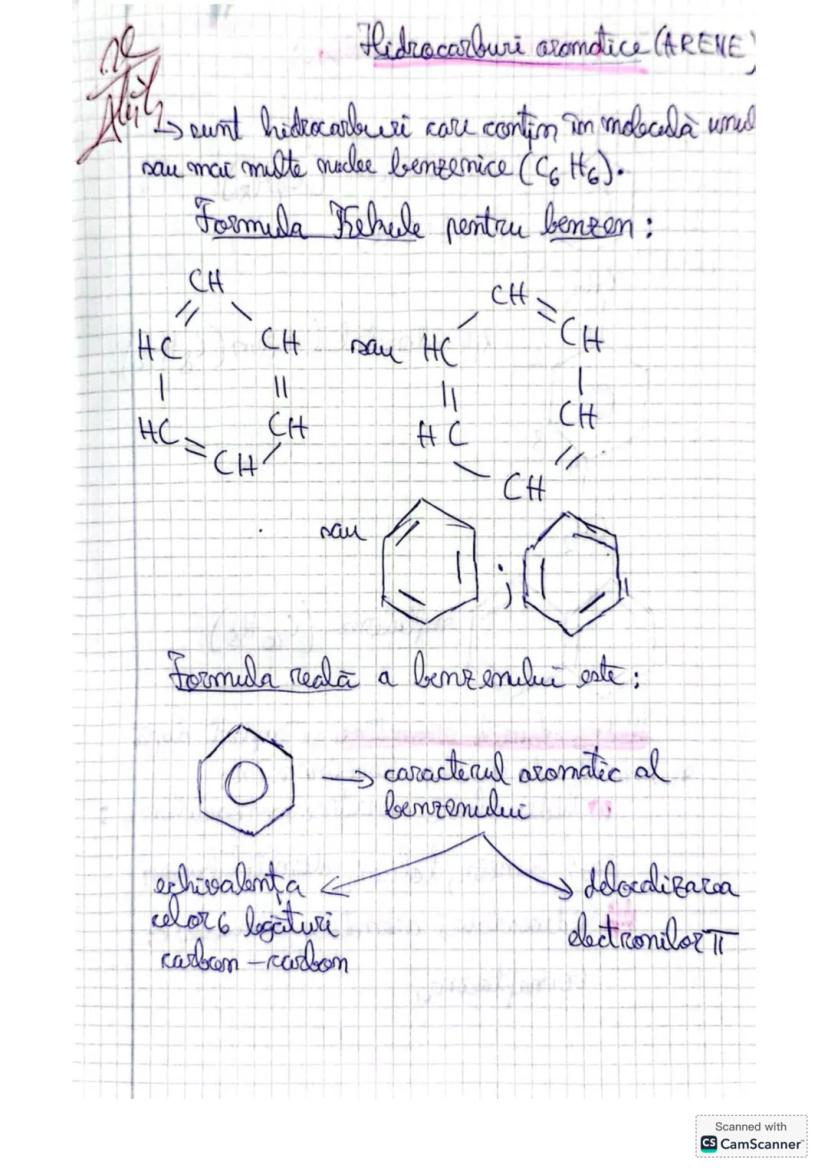 Hidrocarburi aromatice (ARENE)
→ sunt hidrocarburi care conțin în moleculă unul
sau mai multe nuclee benzenice (C6 H6).
Formula Kekule pentru benzen:
CH
HC CH
HC CH
CH
sau
CH
HC CH
HC CH
CH
sau ;
Formula reală a benzenului este:
→ caracterul aromatic al
benzenului
echivalența
celor 6 legături
carbon - carbon
delocalizarea
electronilor π
Scanned with
CS CamScanner